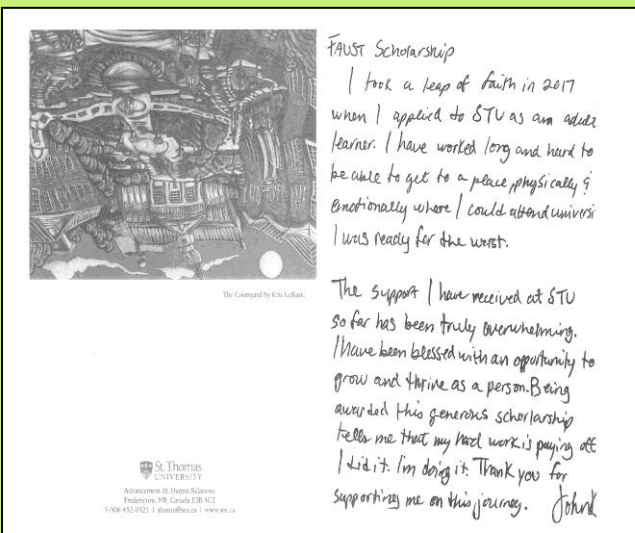 The Courtyard by Kris LeBlanc
St. Thomas
UNIVERSITY
Advancement & Alumni Relations
Fredericton, NB, Canada E3B 5G3
1-506-452-0521 | alumni@stu.ca | www.stu.ca
FAUST Scholarship
I took a leap of faith in 2017
when I applied to STU as an adult
learner. I have worked long and hard to
be able to get to a place, physically &
emotionally where I could attend universi
I was ready for the worst.
The support I have received at STU
so far has been truly overwhelming.
I have been blessed with an opportunity to
grow and thrive as a person. Being
awarded this generous scholarship
tells me that my hard work is paying off
I did it. I'm doing it. Thank you for
supporting me on this journey.